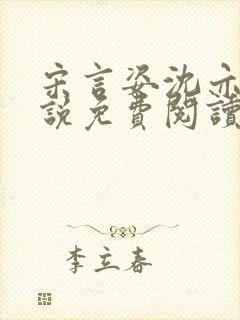 宋言姿沈亦
說免費閱讀
李立春